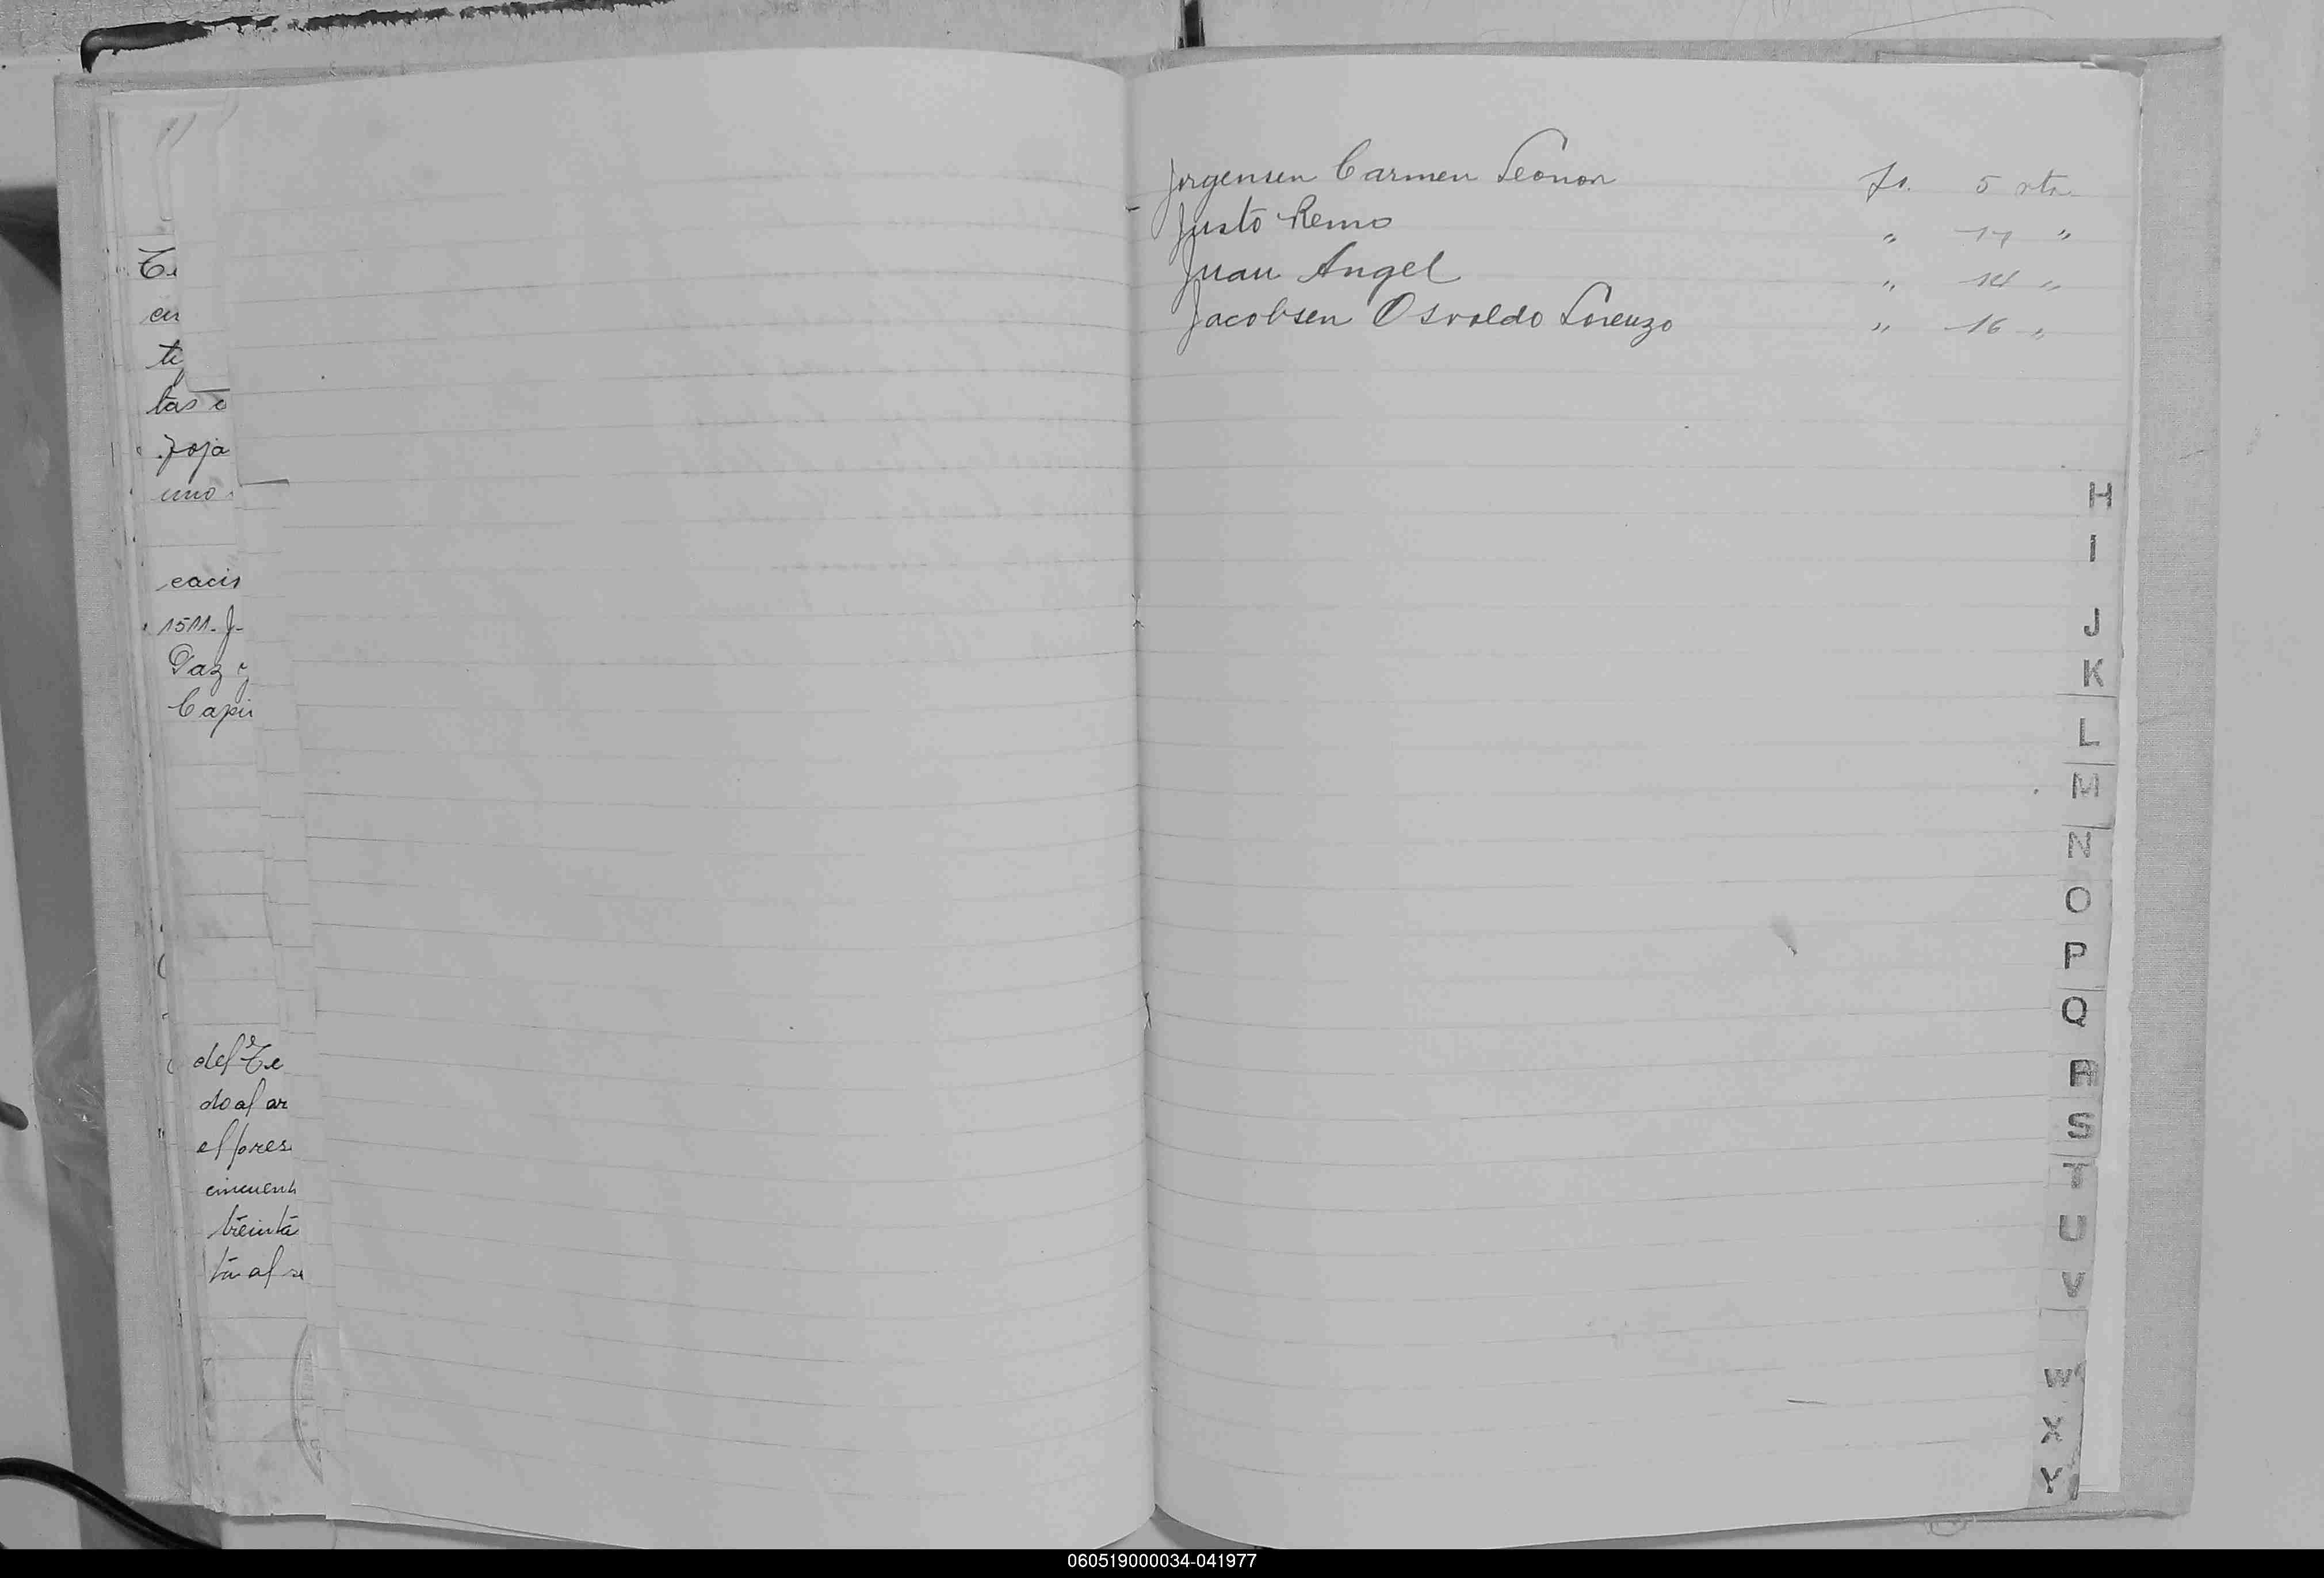 Te
en
te
tas e
foja
uno
eacis
1511. J-
Paz y
Capi
del Te
do al ar
el pres
cincuent
treinta
ta al se
Jorgensen Carmen Leonor fs. 5 vta.
Justo Remo " 14 "
Juan Angel " 14 "
Jacobsen Osvaldo Lorenzo " 16 "
H
I
J
K
L
M
N
O
P
Q
R
S
T
U
V
W
X
Y
060519000034-041977